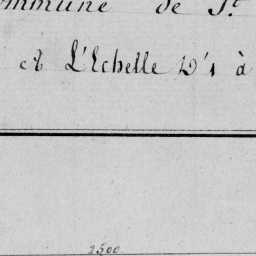 ommune de S.t
et L'Echelle D'1 à
2500